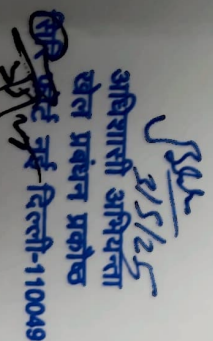 21/5/25
अधिशासी अभियंता
खेल प्रबंधन प्रकोष्ठ
सिरि फोर्ट नई दिल्ली-110049